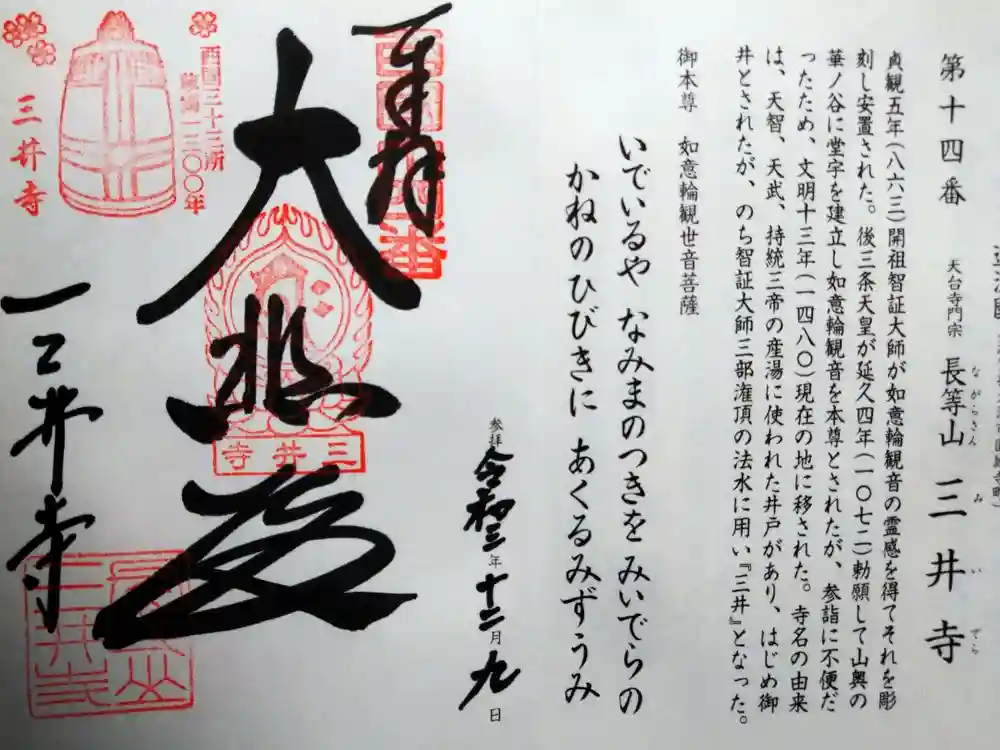 第十四番
天台寺門宗 長等山 三井寺
ながらさん みいでら
貞観五年(八六三)開祖智証大師が如意輪観音の霊感を得てそれを彫
刻し安置された。後三条天皇が延久四年(一〇七二)勅願して山奥の
華ノ谷に堂宇を建立し如意輪観音を本尊とされたが、参詣に不便だ
ったため、文明十三年(一四八〇)現在の地に移された。寺名の由来
は、天智、天武、持統三帝の産湯に使われた井戸があり、はじめ御
井とされたが、のち智証大師三部潅頂の法水に用い『三井』となった。
御本尊 如意輪観世音菩薩
いでいるや なみまのつきを みいでらの
かねのひびきに あくるみずうみ
参拝 令和三年十二月九日
奉拝
大悲殿
三井寺
西国三十三所
三井寺
三井寺